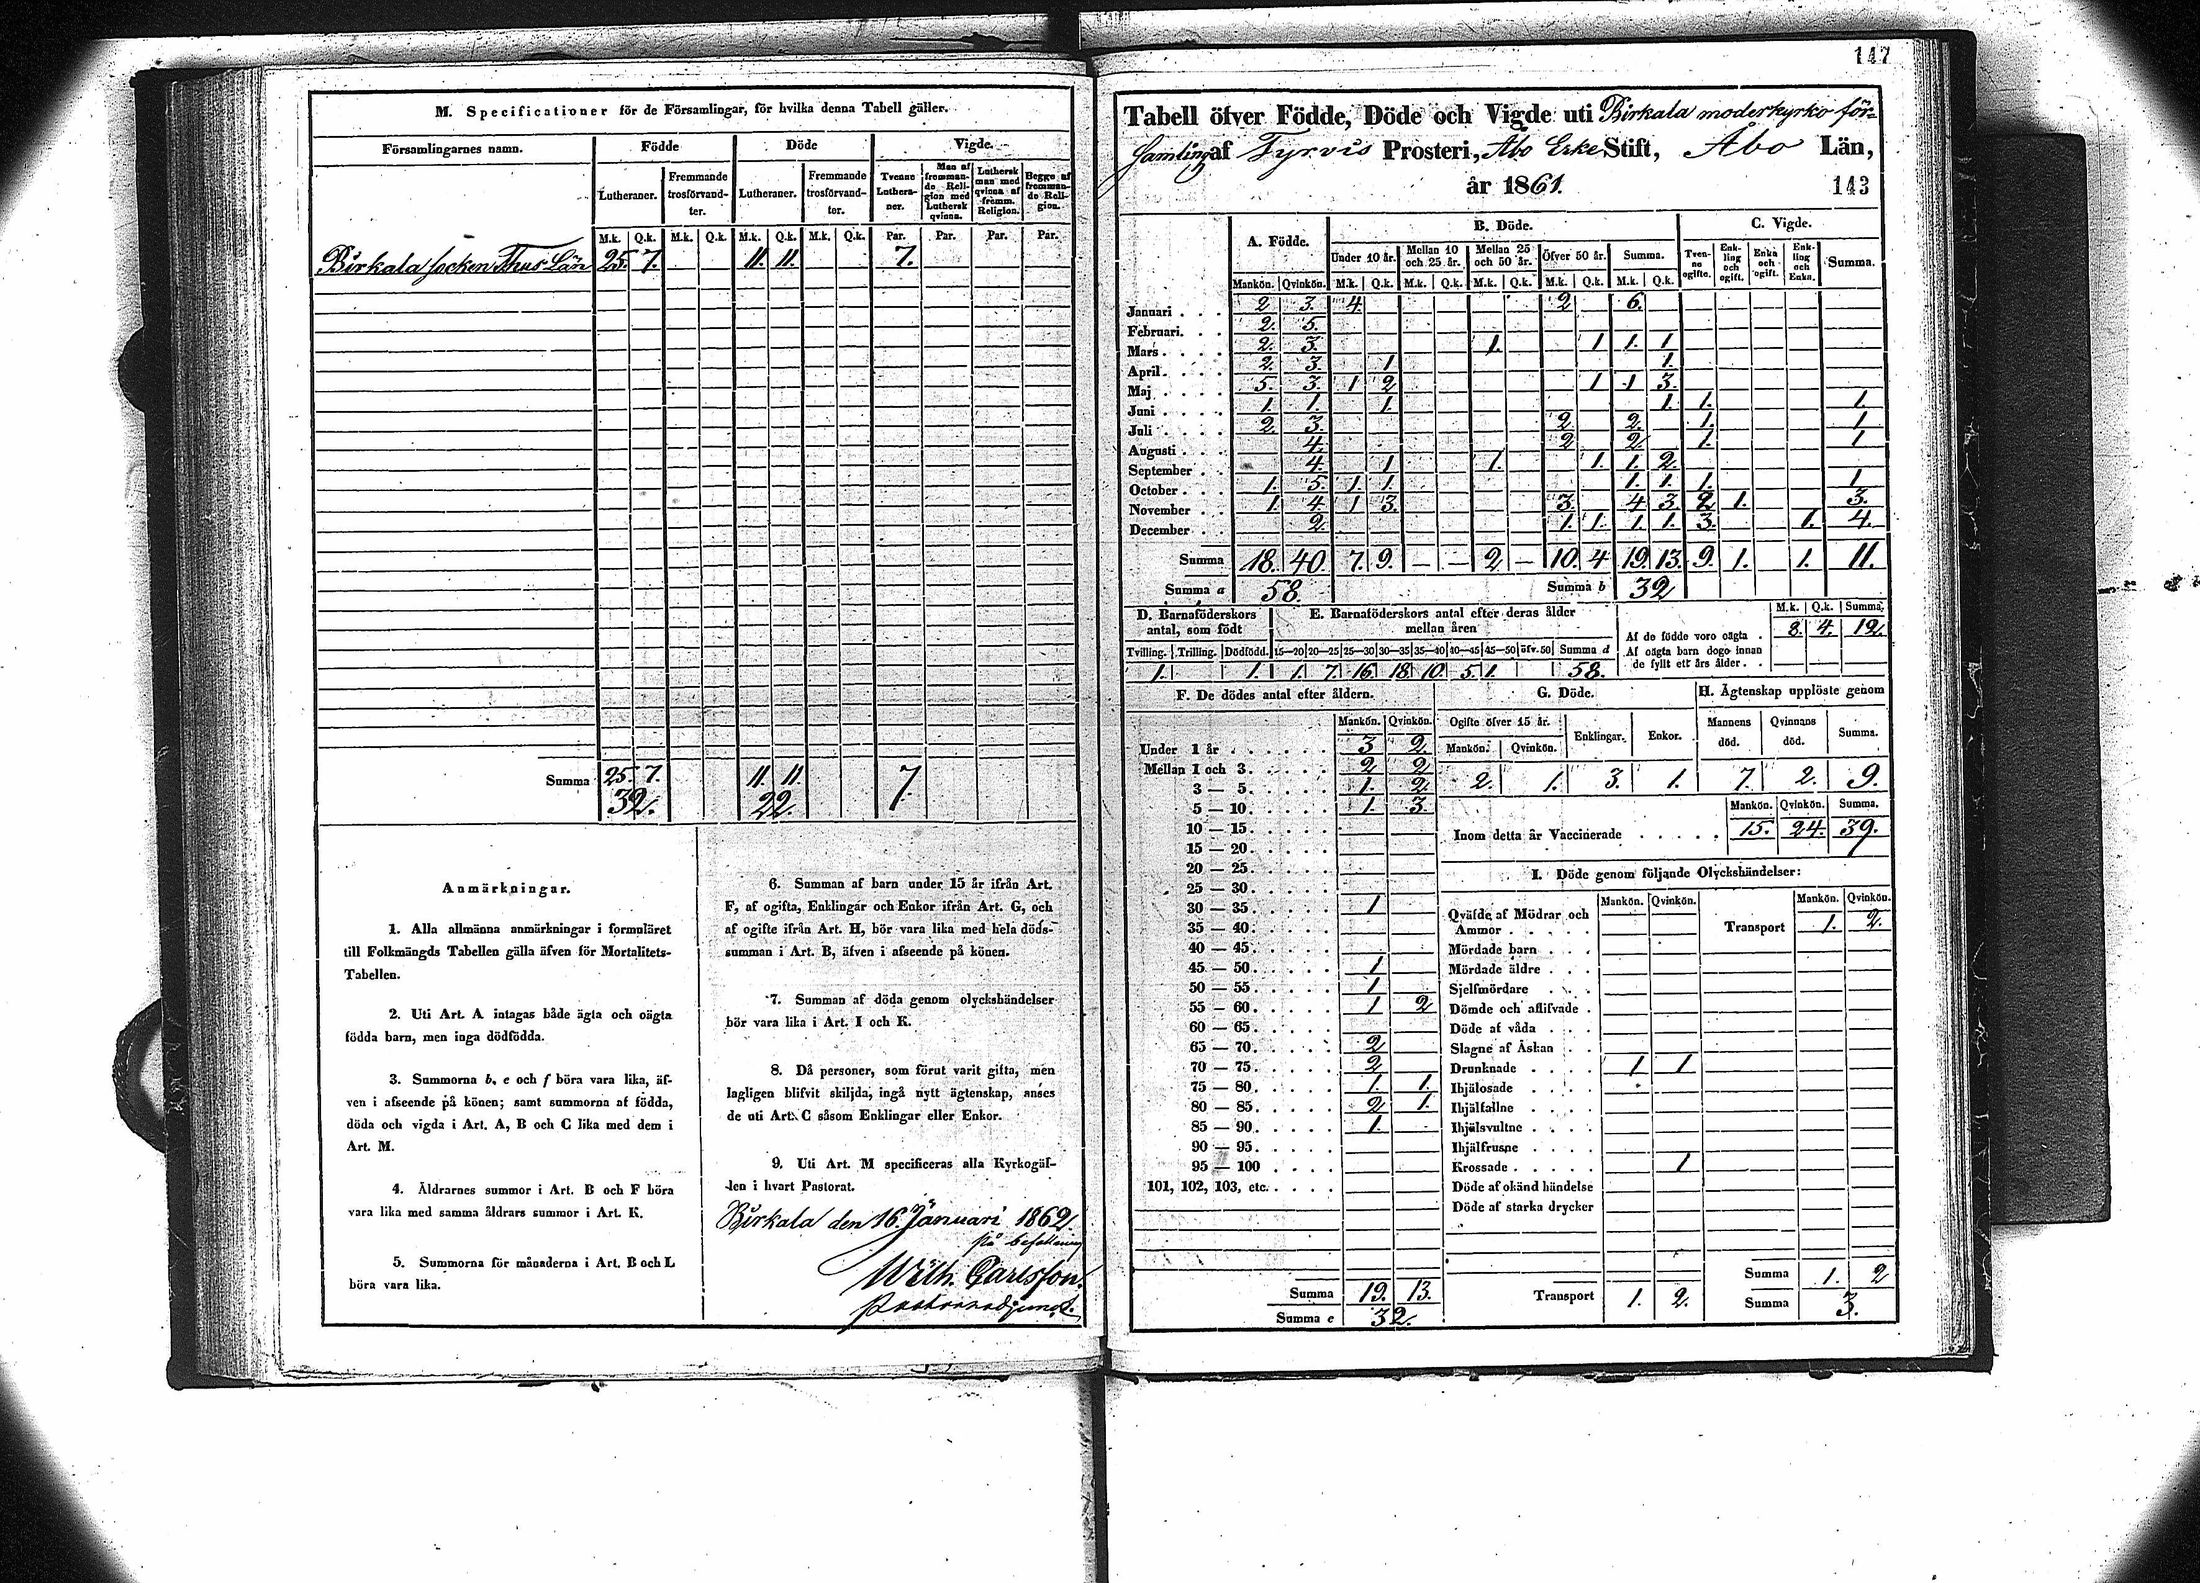 M. Specificationer för de Församlingar, för hvilka denna Tabell gäller.
Församlingarnes namn. Födde Döde Vigde.
Lutheraner. Fremmande trosförvandter. Lutheraner. Fremmande trosförvandter. Tvenne Lutheraner. Man af fremmande Religion med Luthersk qvinna. Luthersk man med qvinna af fremm. Religion. Begge af fremmande Religion.
M.k. Q.k. M.k. Q.k. M.k. Q.k. M.k. Q.k. Par. Par. Par. Par.
Birkala socken Thus Län 25. 7. 11. 11. 7.
Summa 25. 7. 11. 11. 7.
32. 22.
Anmärkningar.
1. Alla allmänna anmärkningar i formuläret
till Folkmängds Tabellen gälla äfven för Mortalitets-
Tabellen.
2. Uti Art. A intagas både ägta och oägta
födda barn, men inga dödfödda.
3. Summorna b, e och f böra vara lika, äf-
ven i afseende på könen; samt summorna af födda,
döda och vigda i Art. A, B och C lika med dem i
Art. M.
4. Åldrarnes summor i Art. B och F böra
vara lika med samma åldrars summor i Art. K.
5. Summorna för månaderna i Art. B och L
böra vara lika.
6. Summan af barn under 15 år ifrån Art.
F, af ogifta, Enklingar och Enkor ifrån Art. G, och
af ogifte ifrån Art. H, bör vara lika med hela döds-
summan i Art. B, äfven i afseende på könen.
7. Summan af döda genom olyckshändelser
bör vara lika i Art. I och K.
8. Då personer, som förut varit gifta, men
lagligen blifvit skiljda, ingå nytt ägtenskap, anses
de uti Art. C såsom Enklingar eller Enkor.
9. Uti Art. M specificeras alla Kyrkogäl-
den i hvart Pastorat.
Birkala den 16. Januari 1862.
på befallning
Wilh. Carlsson.
Pastorsadjunct.
147
Tabell öfver Födde, Döde och Vigde uti Birkala moderkyrko för-
samling af Tyrvis Prosteri, Åbo Erke Stift, Åbo Län,
år 1861.
143
A. Födde. B. Döde. C. Vigde.
Under 10 år. Mellan 10 och 25 år. Mellan 25 och 50 år. Öfver 50 år. Summa. Tvenne ogifte. Enkling och ogift. Enka och ogift. Enkling och Enka. Summa.
Mankön. Qvinkön. M.k. Q.k. M.k. Q.k. M.k. Q.k. M.k. Q.k. M.k. Q.k.
Januari 2. 3. 4. 2 6.
Februari. 2. 5.
Mars 2. 3. 1. 1 1. 1
April. 2. 3. 1 1.
Maj 5. 3. 1 2 1 1 3.
Juni 1. 1. 1. 1. 1. 1.
Juli 2. 3. 2 2. 1. 1
Augusti 4. 2 2 1. 1
September 4. 1 1. 1. 1. 2.
October 1. 5. 1 1. 1. 1. 1. 1
November 1. 4. 1 3. 3. 4 3 2 1. 3.
December 2. 1. 1. 1. 1. 3. 1. 4.
Summa 18. 40 7. 9. — — 2 — 10. 4 19. 13. 9. 1. 1. 11.
Summa a 58. Summa b 32
D. Barnaföderskors antal, som födt
E. Barnaföderskors antal efter deras ålder mellan åren
Tvilling. Trilling. Dödfödd. 15—20 20—25 25—30 30—35 35—40 40—45 45—50 öfv. 50 Summa d
1. 1. 1. 7. 16. 18. 10. 5. 1. 58.
M.k. Q.k. Summa.
Af de födde voro oägta 8. 4. 12.
Af oägta barn dogo innan
de fyllt ett års ålder
F. De dödes antal efter åldern.
Mankön. Qvinkön.
Under 1 år 3 2.
Mellan 1 och 3. 2 2
3 — 5. 1. 2.
5 — 10. 1. 3.
10 — 15.
15 — 20.
20 — 25.
25 — 30.
30 — 35. 1
35 — 40.
40 — 45.
45 — 50. 1
50 — 55. 1
55 — 60. 1 2
60 — 65.
65 — 70. 2
70 — 75. 2
75 — 80. 1. 1.
80 — 85. 2 1.
85 — 90. 1.
90 — 95.
95 — 100
101, 102, 103, etc.
Summa 19. 13.
Summa e 32.
G. Döde.
Ogifte öfver 15 år. Enklingar. Enkor.
Mankön. Qvinkön.
2. 1. 3. 1.
H. Ägtenskap upplöste genom
Mannens död. Qvinnans död. Summa.
7. 2. 9.
Mankön. Qvinkön. Summa.
Inom detta år Vaccinerade 15. 24. 39.
I. Döde genom följande Olyckshändelser:
Mankön. Qvinkön. Mankön. Qvinkön.
Qväfde af Mödrar och
Ammor
Transport 1. 2.
Mördade barn
Mördade äldre
Sjelfmördare
Dömde och aflifvade
Döde af våda
Slagne af Åskan
Drunknade 1 1
Ihjälosade
Ihjälfallne
Ihjälsvultne
Ihjälfrusne
Krossade 1
Döde af okänd händelse
Döde af starka drycker
Summa 1. 2
Transport 1. 2. Summa 3.